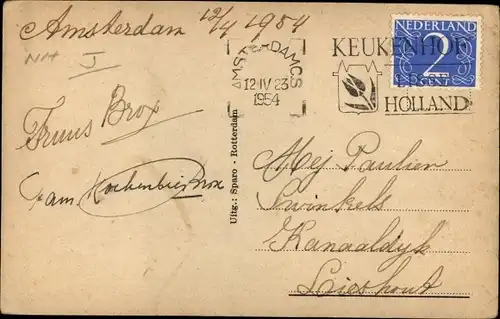 Amsterdam 12/4 1954
NH J
AMSTERDAM CS
12 IV 23
1954
KEUKENHOF
LISSE
HOLLAND
NEDERLAND
2
CENT
Truus Brox
Fam. Brox
Uitg.: Sparo - Rotterdam
Mej Paulien
Swinkels
Kanaaldijk
Lieshout